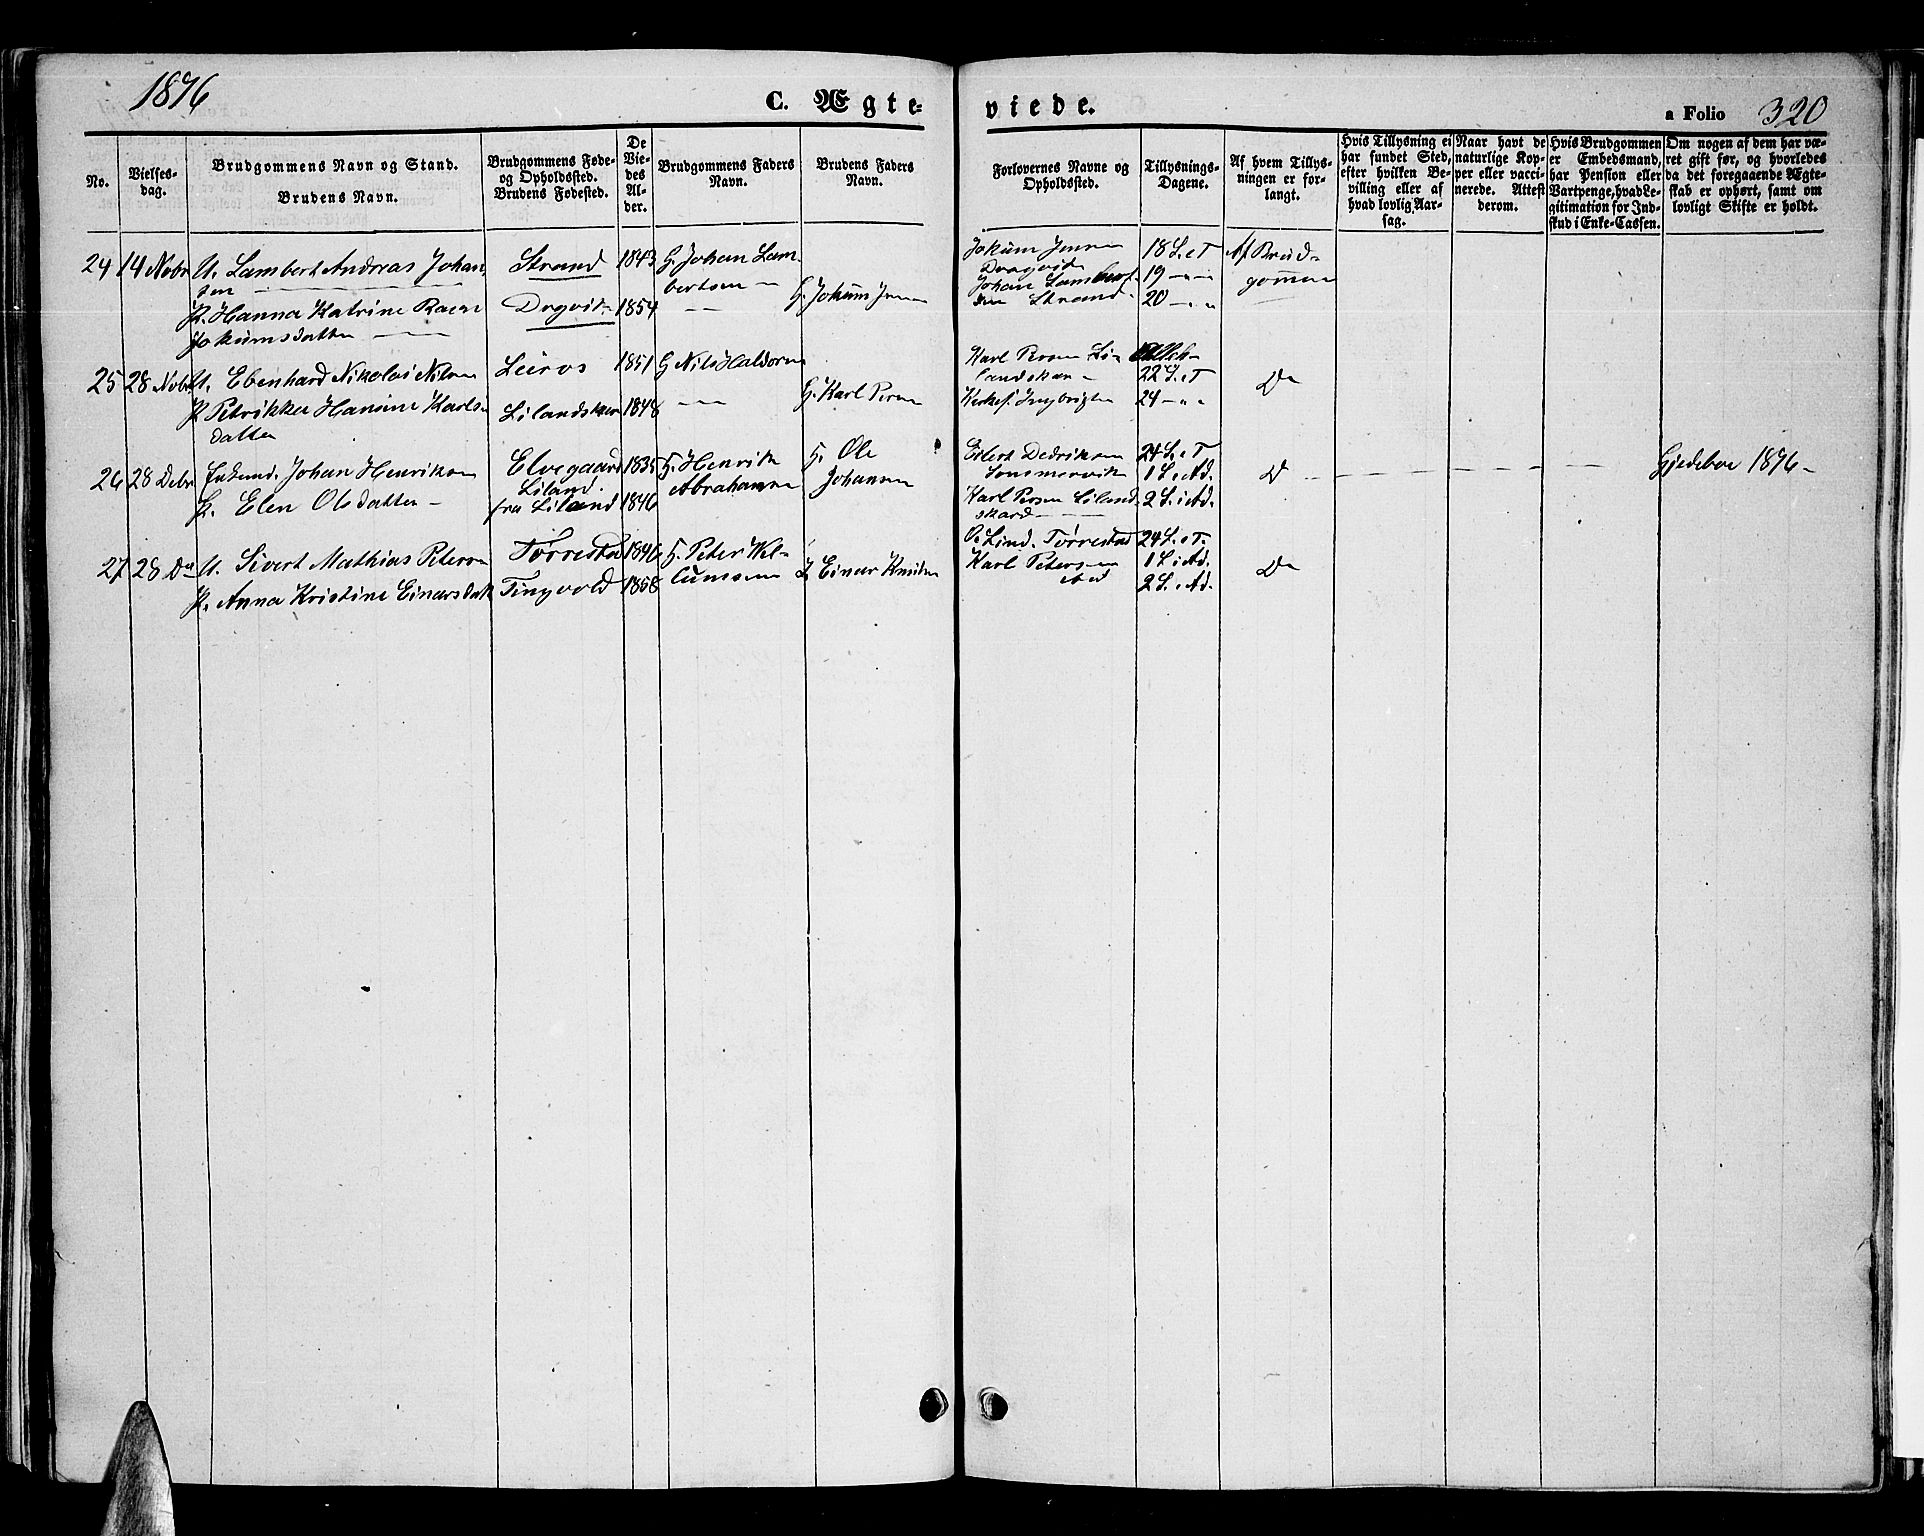 1876
C. Ægte-
viede.
a Folio 320
No.
Vielses-
dag.
Brudgommens Navn og Stand.
Brudens Navn.
Brudgommens Føde-
og Opholdssted.
Brudens Fødested.
De
Vie-
des
Al-
der.
Brudgommens Faders
Navn.
Brudens Faders
Navn.
Forlovernes Navne og
Opholdssted.
Tillysnings-
Dagene.
Af hvem Tillys-
ningen er for-
langt.
Hvis Tillysning ei
har fundet Sted,
efter hvilken Be-
villing eller af
hvad lovlig Aar-
sag.
Naar havt de
naturlige Kop-
per eller vacci-
nerede. Attest
derom.
Hvis Brudgommen
er Embedsmand,
har Pension eller
Vartpenge, hvad Le-
gitimation for Ind-
skud i Enke-Cassen.
Om nogen af dem har væ-
ret gift før, og hvorledes
da det foregaaende Ægte-
skab er ophørt, samt om
lovligt Skifte er holdt.
24 14 Nobr U. Lambert Andreas Johan
sen
P. Hanna Katrine
Jokumsdatter
Strand 1843
Dragvik 1854
G. Johan Lam-
bertsen
G. Jokum Jensen
Jokum Jensen
Dragvik
Johan Lambert-
sen Strand
18 S. e T
19 - " -
20 - " "
Af Brud-
gommen
25 28 Nobr U. Ebenhard Nikolai Nilsen
P. Petrikke Hansine Karls-
datter
Leiros 1851
Lilandskar 1848
G Nils Haldorsen
G. Karl Persen
Karl Persen Li-
landskar
22 S. e T
24 - " "
Do
26 28 Debr Enkemd. Johan Henriksen
P. Elen Olsdatter
Elvegaard 1835
Liland
fra Liland 1846
G. Henrik
Abrahamsen
G. Ole
Johansen
Eilert Dedriksen
Sommervik
Karl Persen Liland-
skard
24 S. e T
1 S. i Ad.
2 S. i Ad.
Do
Gjedebon 1876
27 28 Do U. Sivert Mathias Petersen
P. Anna Kristine Einarsdatt
Tørrestad 1846
Tingvold 1858
G. Peter
G Einar Knudsen
O. Lind. Tørrestad
Karl Petersen
ibid
24 S. e T.
1 S. i Ad.
2 S. i Ad.
Do